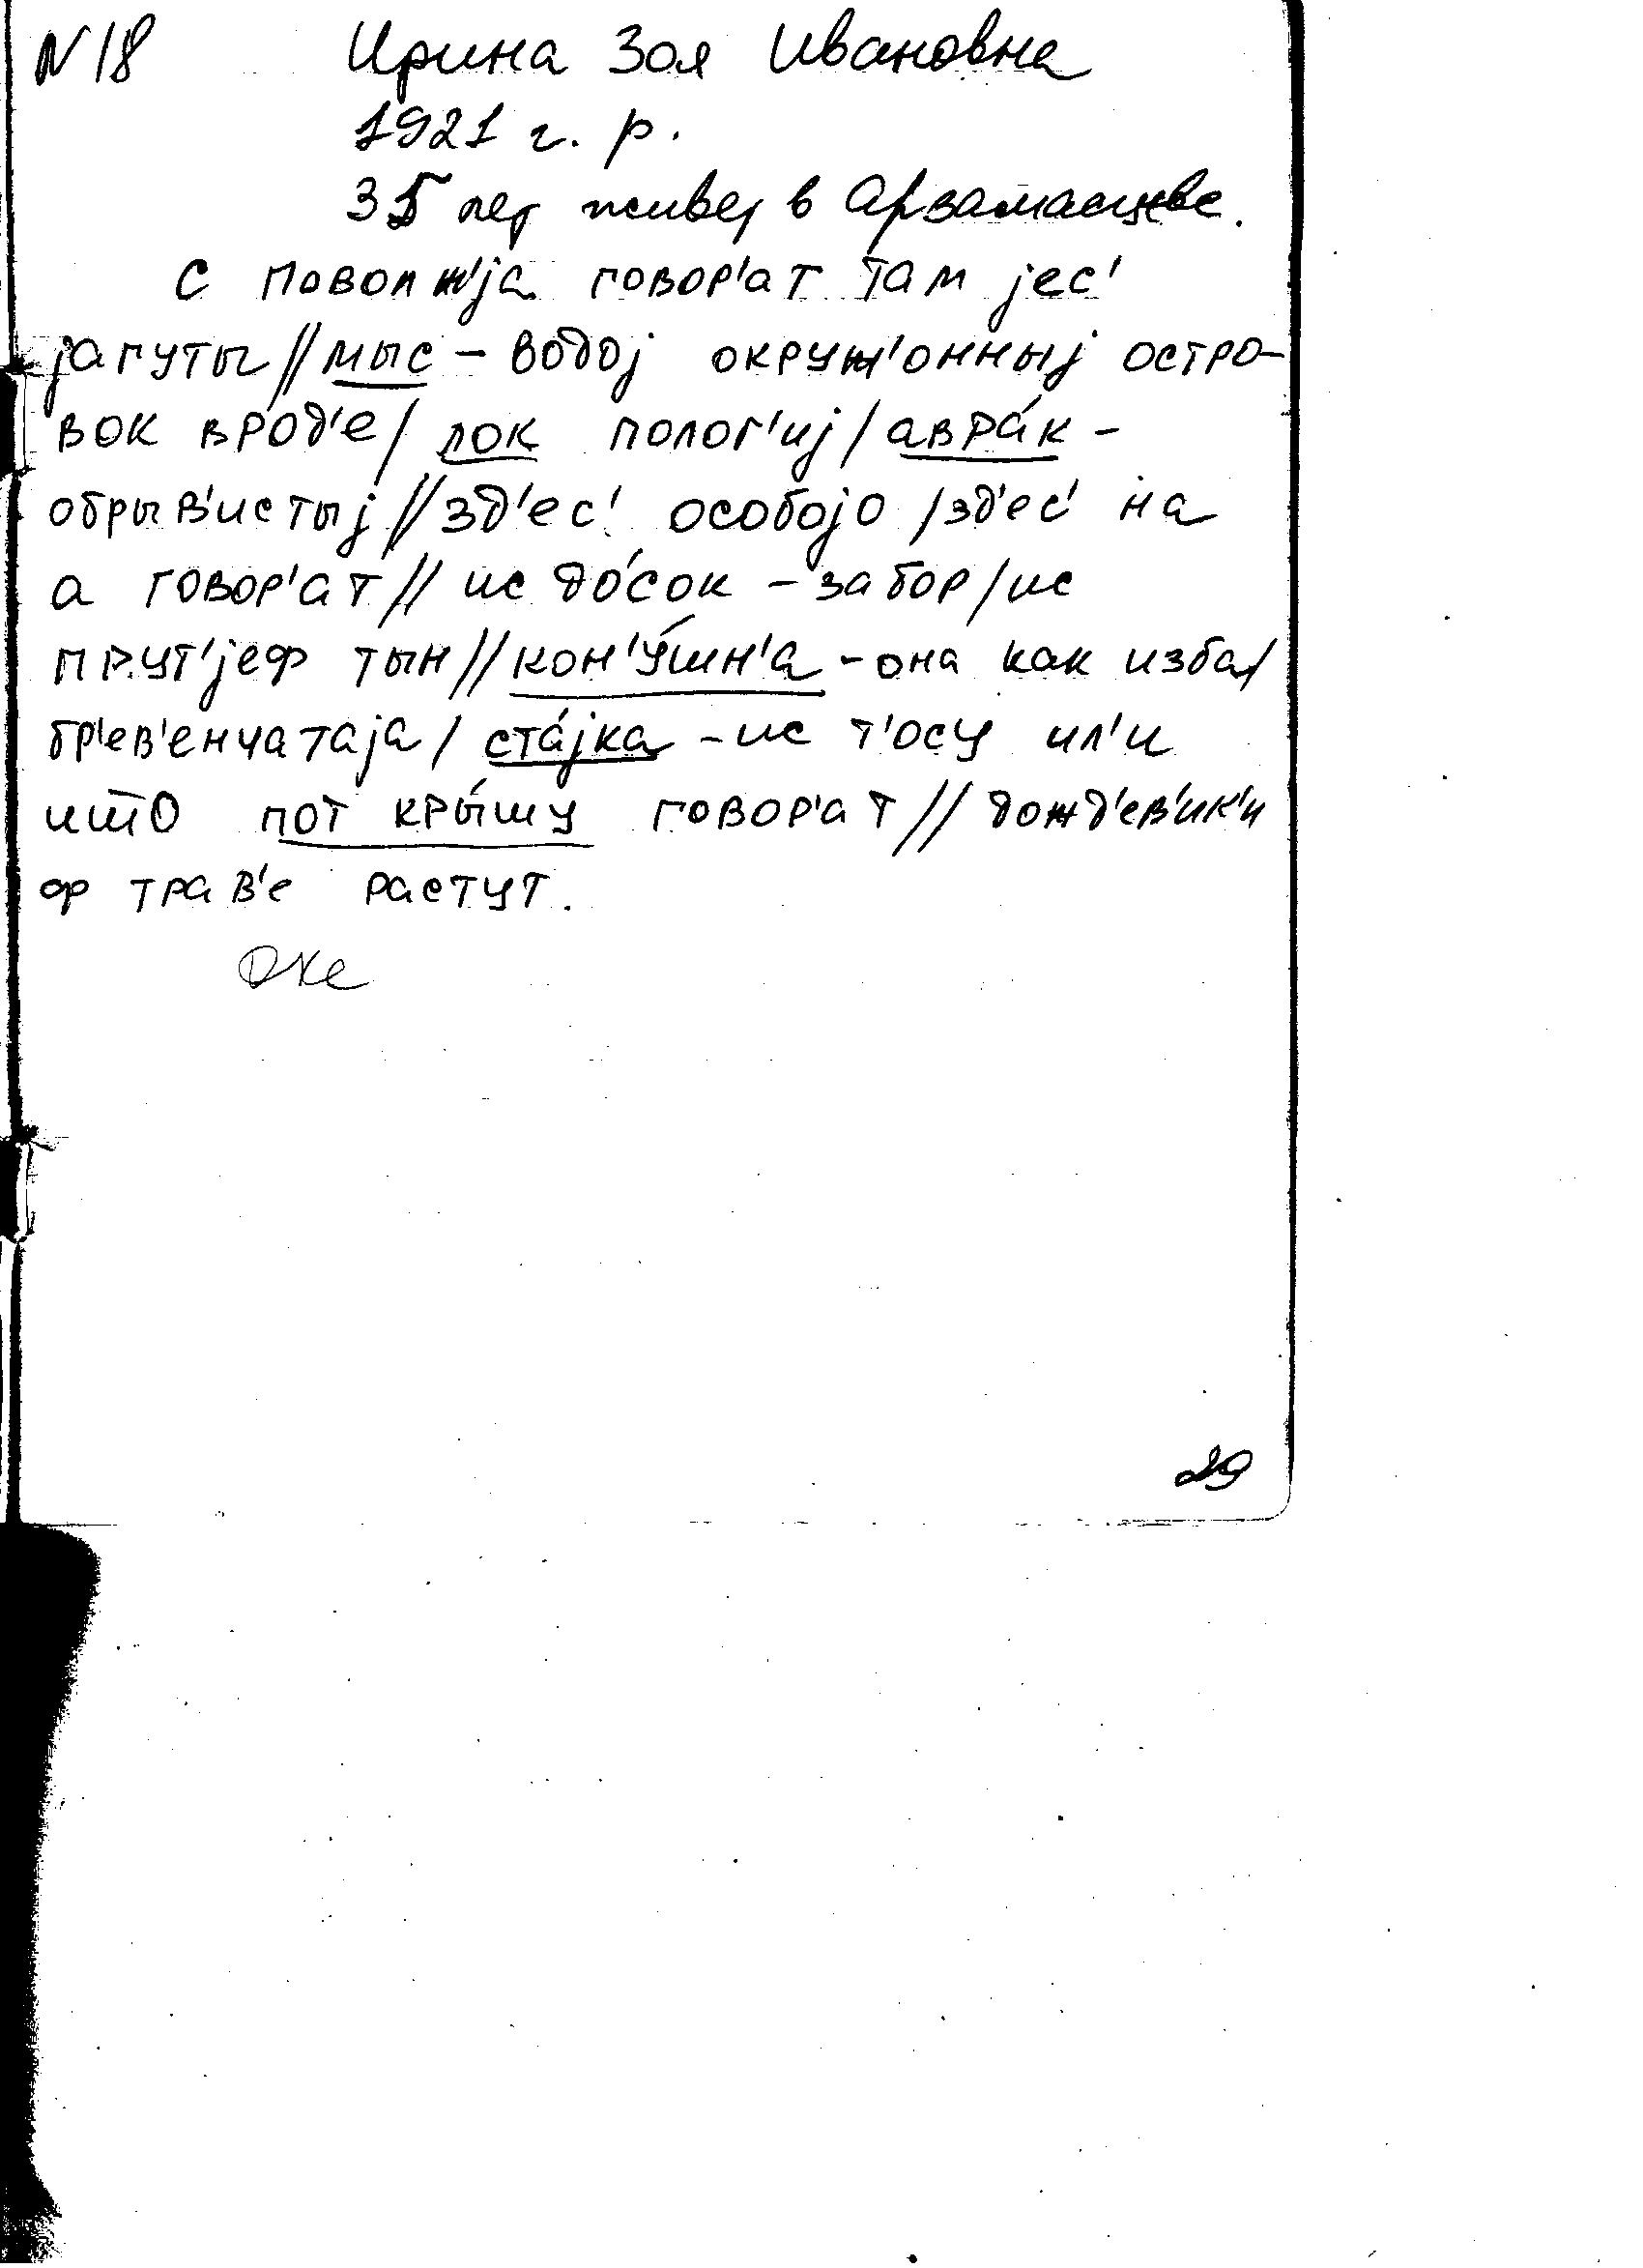 N 18 Ирина Зоя Ивановна
1921 г. р.
35 лет живет в Арзамасцеве.
С поволж'jа говор'ат там jес'
jагуты // мыс – водоj окруж'онныj остро-
вок врод'е / лок полог'иj / авра́к –
обрыв'истыj // зд'ес' особоjо / зд'ес' на
а говор'ат // ис до́сок – забор / ис
прут'jеф тын // кон'у́шн'а – она как изба /
бр'ев'енчатаjа / ста́jка – ис т'осу ил'и
што пот кры́шу говор'ат // дожд'ев'ик'и
ф трав'е растут.
29